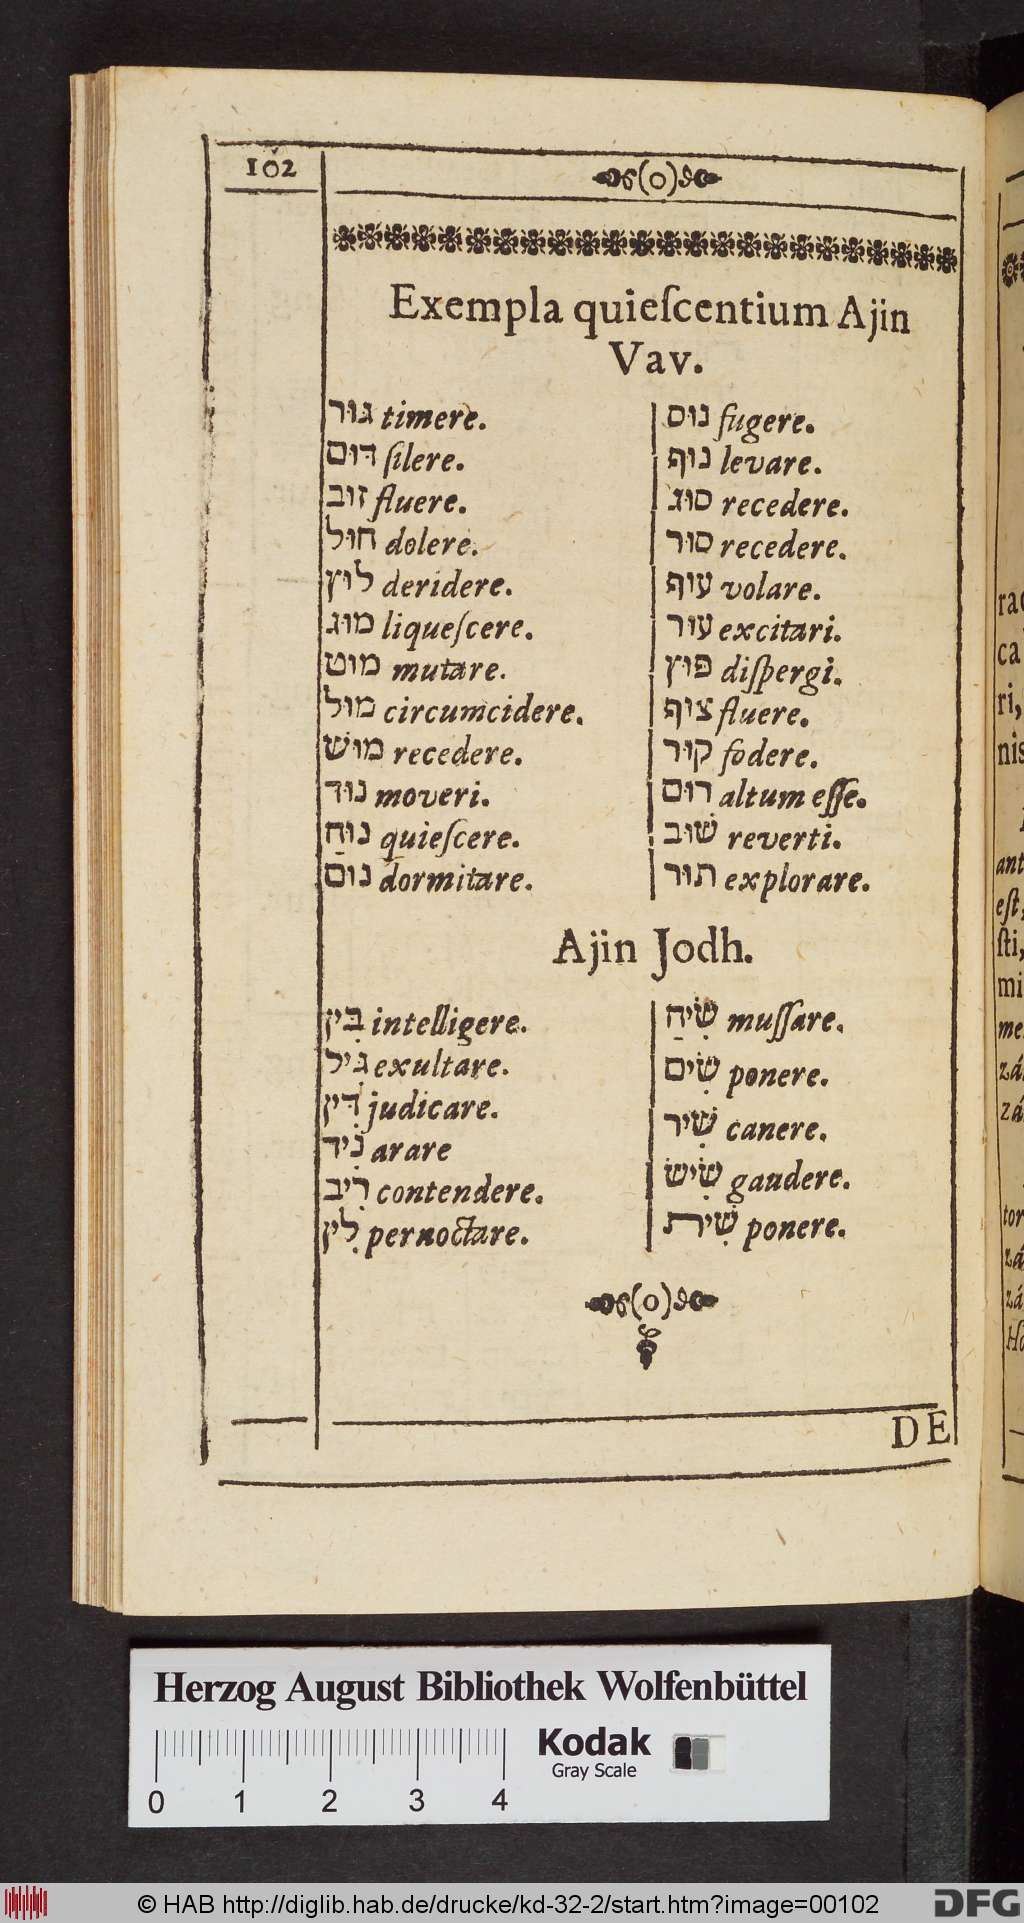 102
(o)
Exempla quieſcentium Ajin
Vav.
גור timere.
דום ſilere.
זוב fluere.
חול dolere.
לוץ deridere.
מוג liqueſcere.
מוט mutare.
מול circumcidere.
מוש recedere.
נוד moveri.
נוחַ quieſcere.
נום dormitare.
נוס fugere.
נוף levare.
סוג recedere.
סור recedere.
עוף volare.
עור excitari.
פוץ diſpergi.
צוף fluere.
קור fodere.
רום altum eſſe.
שׁוב reverti.
תור explorare.
Ajin Jodh.
בִּין intelligere.
גיל exultare.
דִּין judicare.
נִיד arare
רִיב contendere.
לִין pernoctare.
שִׂיחַ muſſare.
שִׂים ponere.
שִׁיר canere.
שִׂישׂ gaudere.
שִׁית ponere.
(o)
DE
Herzog August Bibliothek Wolfenbüttel
Kodak
Gray Scale
0 1 2 3 4
© HAB http://diglib.hab.de/drucke/kd-32-2/start.htm?image=00102
DFG